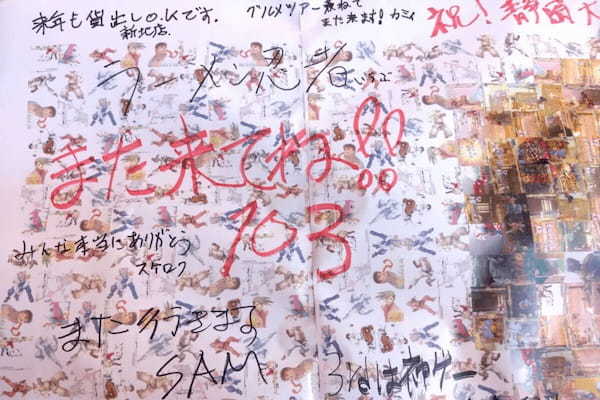 来年も貸出しO.Kです。
新北店
グルメツアー兼ねて
また来ます! カミィ
祝!静岡大
ラーメン忍者
また来てね!!
703
みんな本当にありがとう
スケロク
また行きます
SAM
3rdは神ゲー